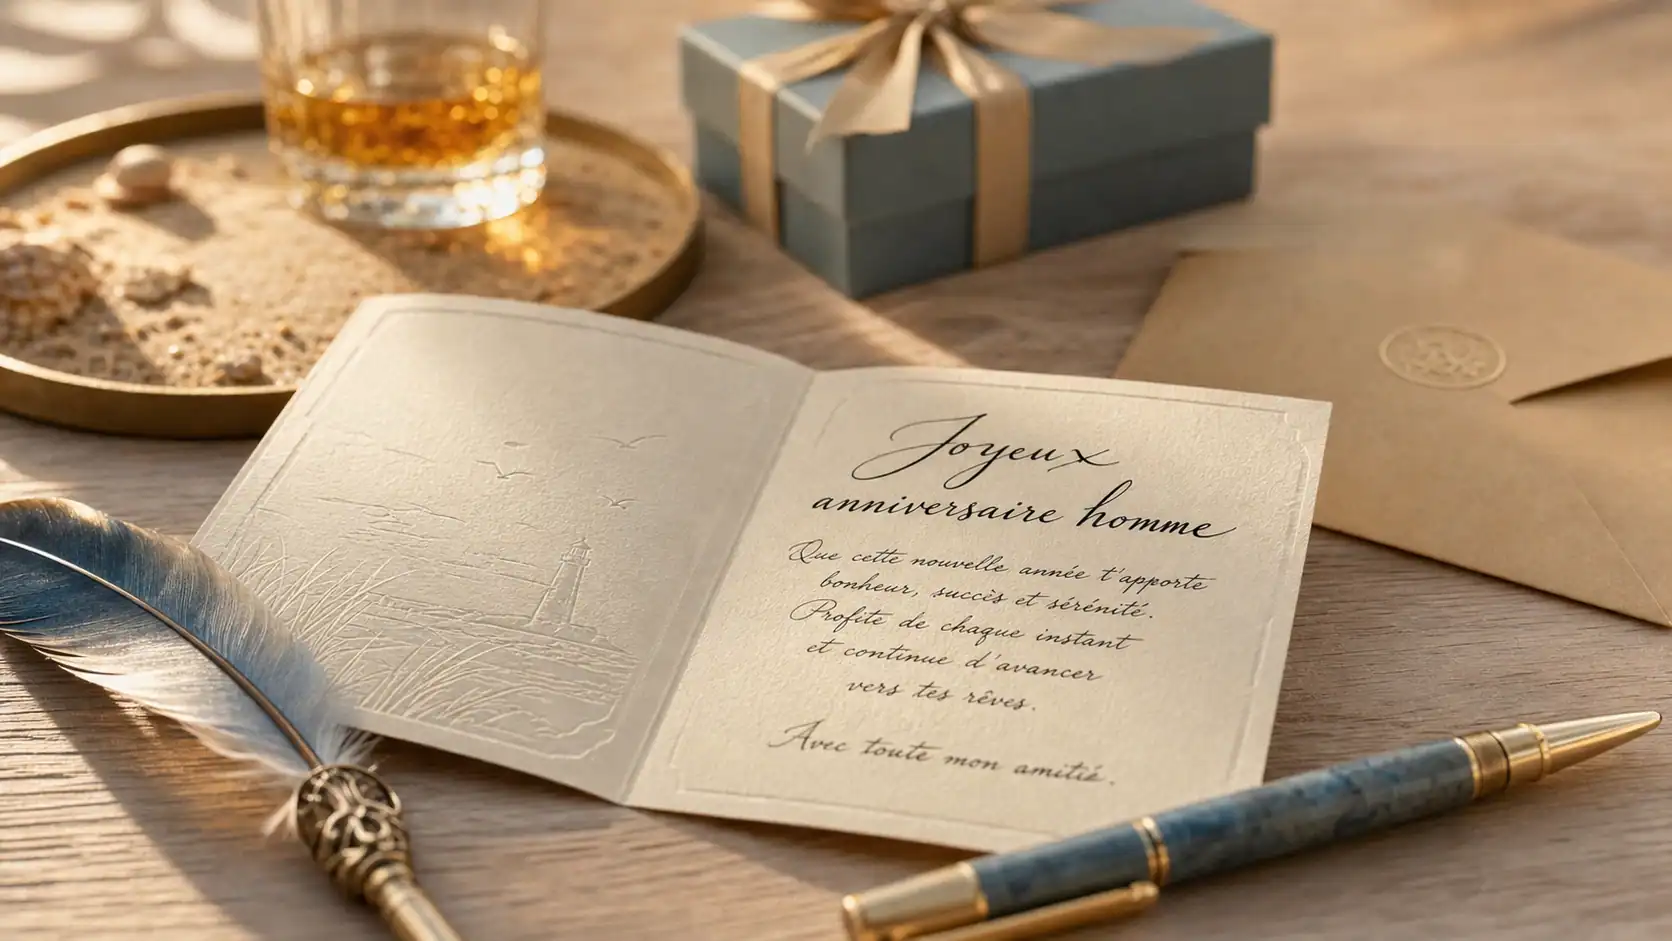 Joyeux
anniversaire homme
Que cette nouvelle année t'apporte
bonheur, succès et sérénité.
Profite de chaque instant
et continue d'avancer
vers tes rêves.
Avec toute mon amitié.